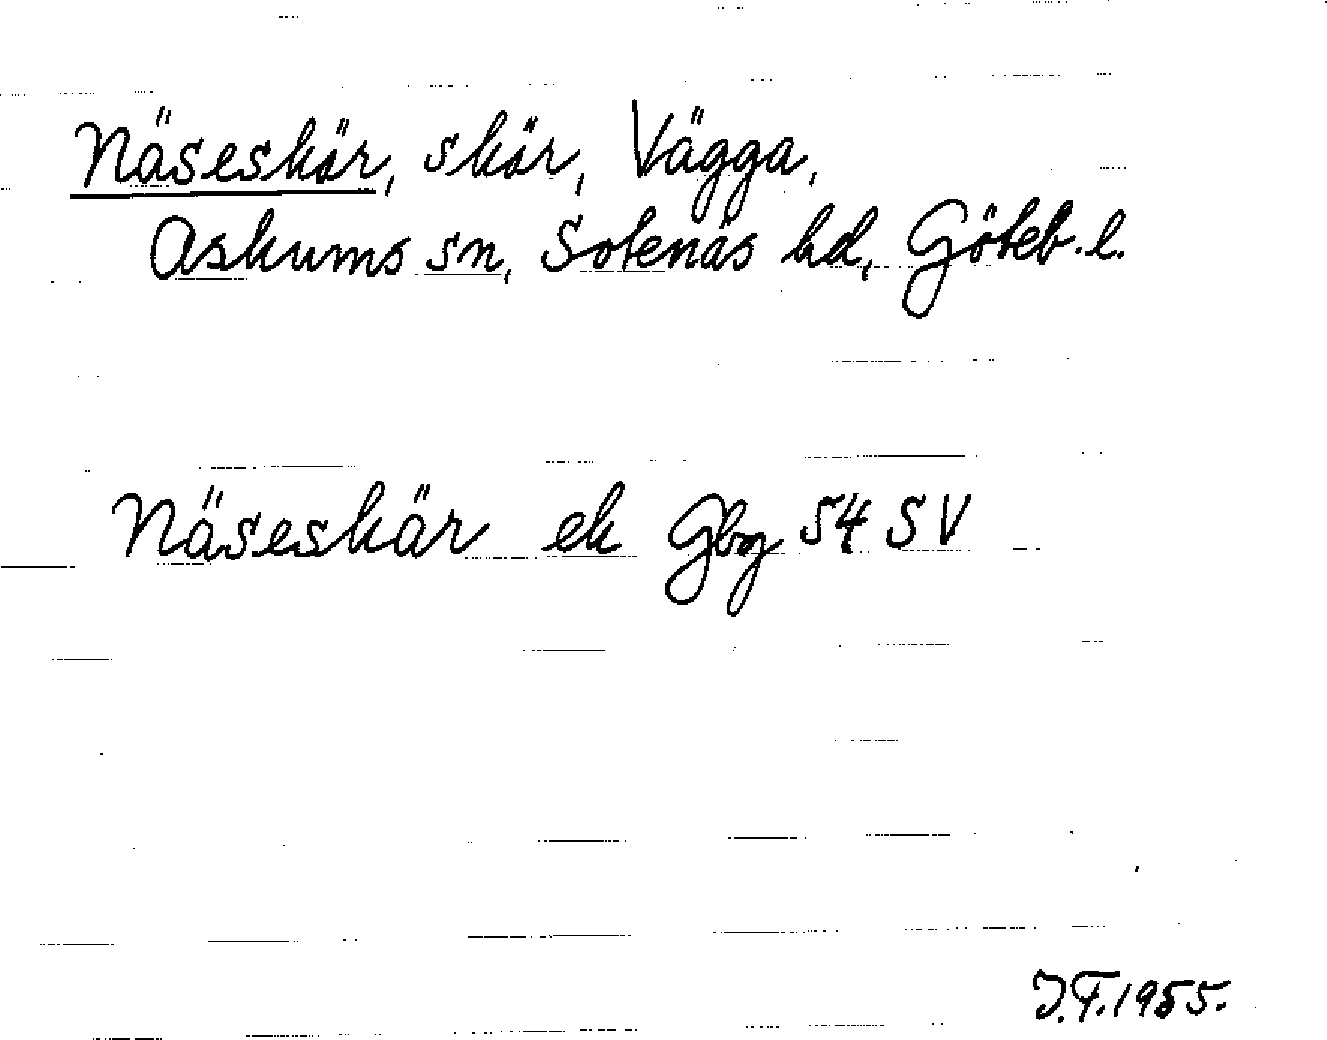 Näseskär, skär, Vägga,
Askums sn, Sotenäs hd, Göteb. l.
Näseskär ek Gbg 54 SV
J.F. 1955.